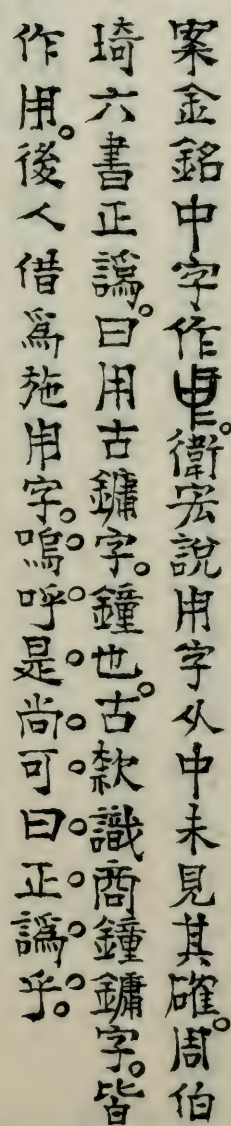 案金銘中字作𠁩。衛宏說用字从中未見其確。周伯
琦六書正譌。曰用古鏞字。鐘也。古欵識商鐘鏞字。皆
作用。後人借爲施用字。嗚呼是尚可曰正譌乎。